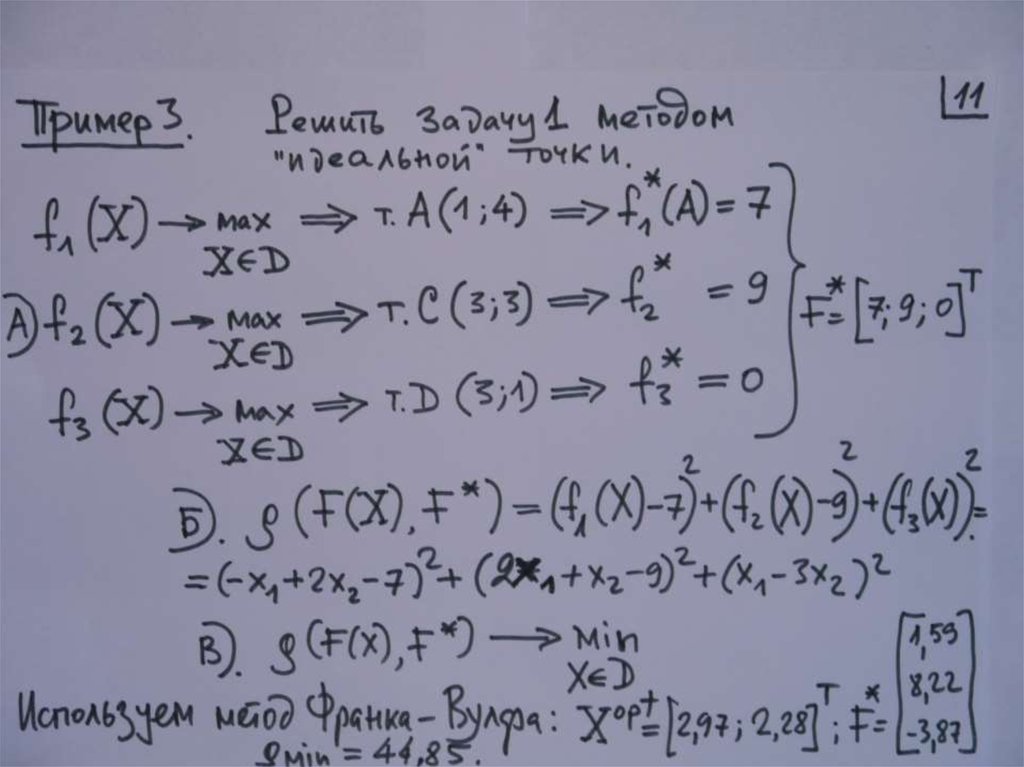 11
Пример 3. Решить задачу 1 методом
"идеальной" точки.
f₁(X) → max ⇒ т. A(1;4) ⇒ f₁*(A) = 7
X∈D
А) f₂(X) → max ⇒ т. C(3;3) ⇒ f₂* = 9
X∈D
F* = [7; 9; 0]ᵀ
f₃(X) → max ⇒ т. D(3;1) ⇒ f₃* = 0
X∈D
Б). ρ(F(X), F*) = (f₁(X)-7)² + (f₂(X)-9)² + (f₃(X))² =
= (-x₁+2x₂-7)² + (2x₁+x₂-9)² + (x₁-3x₂)²
В). ρ(F(X), F*) → min
X∈D
Используем метод Франка-Вулфа: Xᵒᵖᵗ = [2,97; 2,28]ᵀ; F* = [1,59 8,22 -3,87]
ρmin = 44,85.